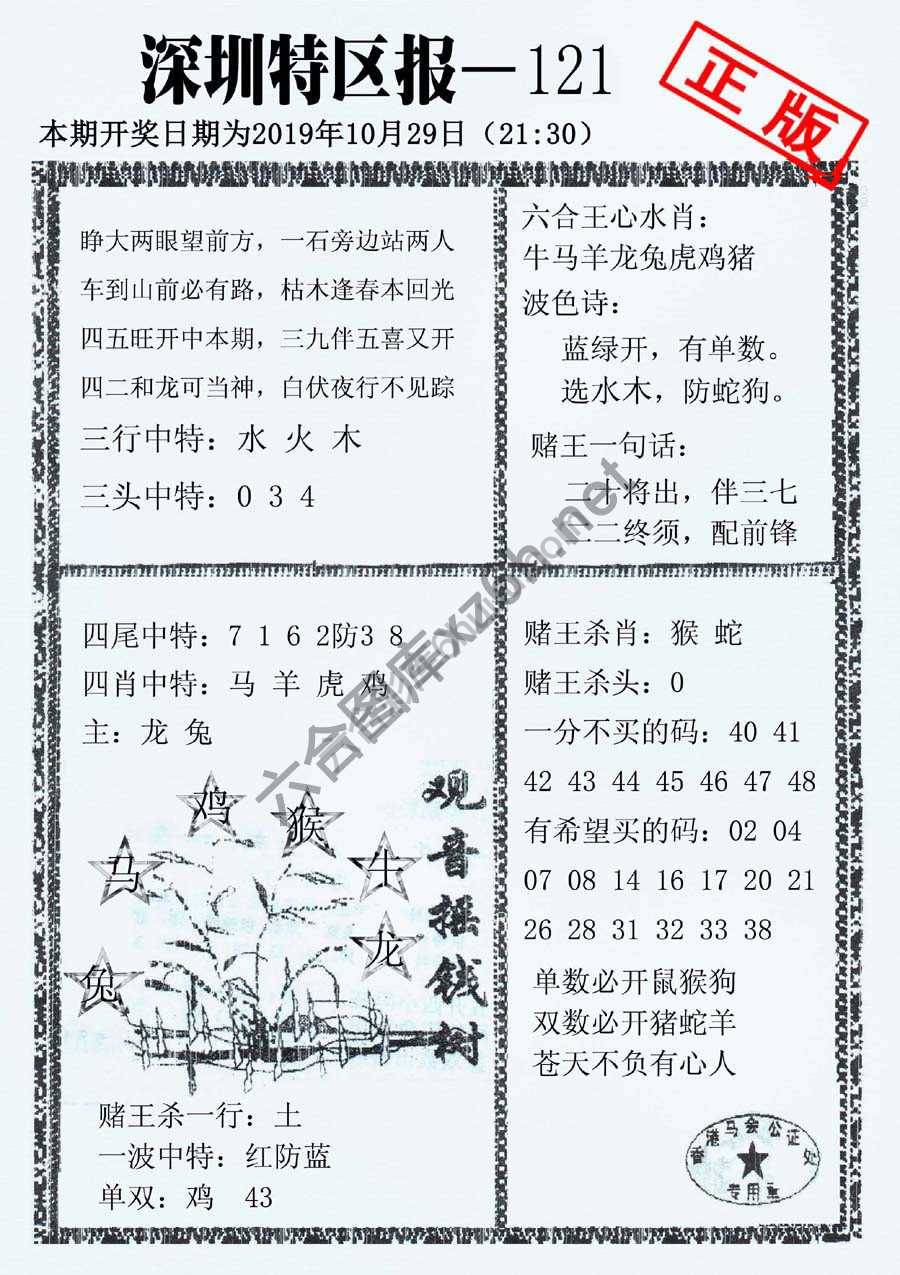 深圳特区报—121
正版
本期开奖日期为2019年10月29日（21:30）
睁大两眼望前方，一石旁边站两人
车到山前必有路，枯木逢春本回光
四五旺开中本期，三九伴五喜又开
四二和龙可当神，白伏夜行不见踪
三行中特：水 火 木
三头中特：0 3 4
六合王心水肖：
牛马羊龙兔虎鸡猪
波色诗：
蓝绿开，有单数。
选水木，防蛇狗。
赌王一句话：
二十将出，伴三七
二二终须，配前锋
四尾中特：7 1 6 2防3 8
四肖中特：马 羊 虎 鸡
主：龙 兔
鸡
猴
马
牛
龙
兔
观音摇钱树
赌王杀一行：土
一波中特：红防蓝
单双：鸡 43
赌王杀肖：猴 蛇
赌王杀头：0
一分不买的码：40 41
42 43 44 45 46 47 48
有希望买的码：02 04
07 08 14 16 17 20 21
26 28 31 32 33 38
单数必开鼠猴狗
双数必开猪蛇羊
苍天不负有心人
香港马会公证处
专用章
六合图库xzoa.net